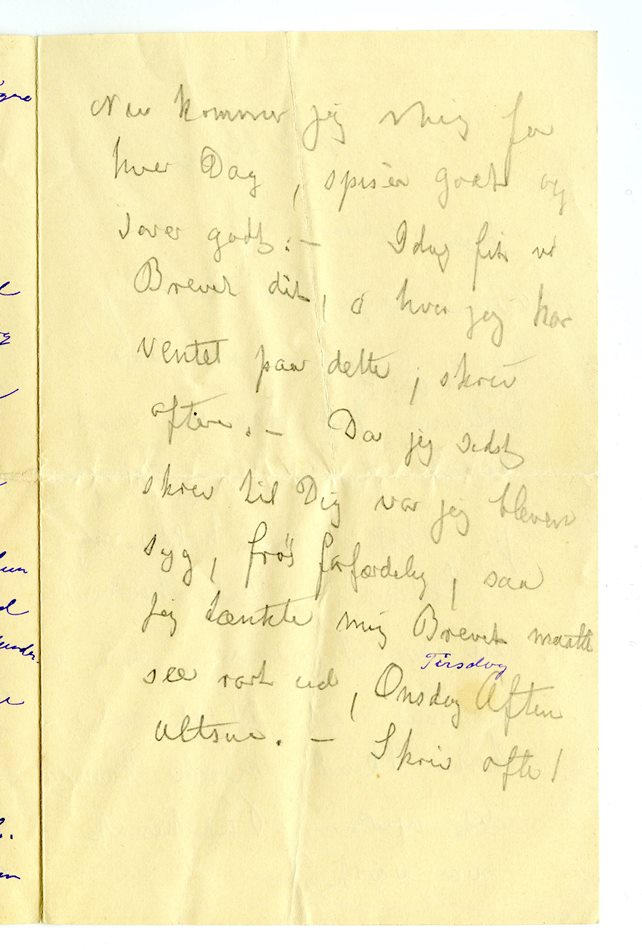 Nu kommer jeg mig for
hver Dag, spiser godt og
sover godt. – Idag fik vi
Brevet dit, o hvor jeg har
ventet paa dette, skriv
oftere. – Da jeg sidst
skrev til Dig var jeg bleven
syg, frös forfærdelig, saa
jeg tænkte mig Brevet maatte
Tirsdag
see rart ud, Onsdag Aften
altsaa. – Skriv ofte!